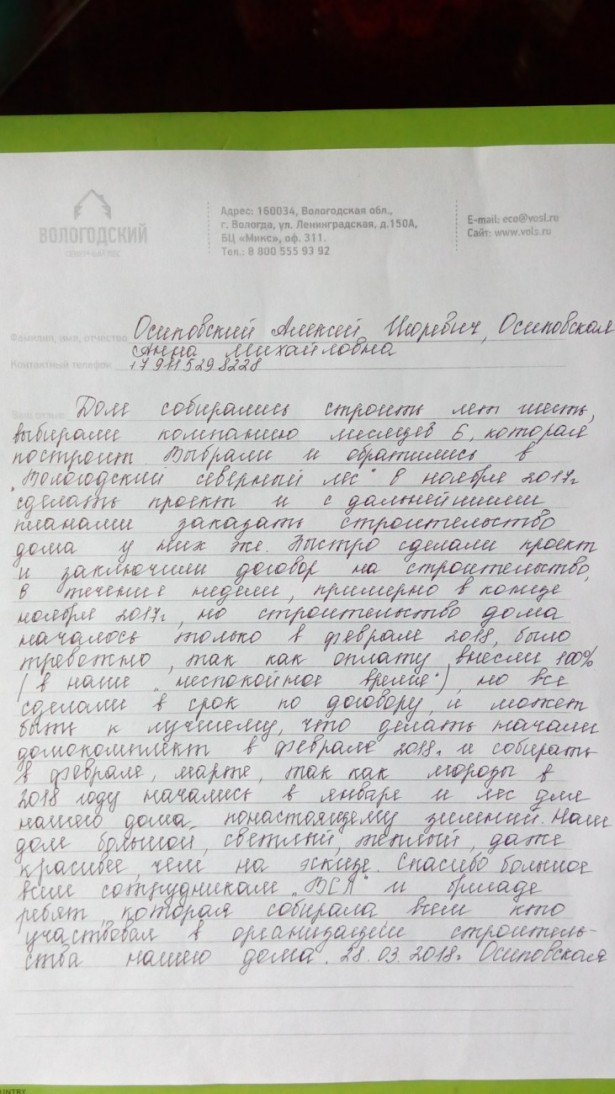 ВОЛОГОДСКИЙ
СЕВЕРНЫЙ ЛЕС
Адрес: 160034, Вологодская обл.,
г. Вологда, ул. Ленинградская, д.150А,
БЦ «Микс», оф. 311.
Тел.: 8 800 555 93 92
E-mail: eco@vosl.ru
Сайт: www.vols.ru
Фамилия, имя, отчество Осиповский Алексей Игоревич, Осиповская
Анна Михайловна
Контактный телефон 179115298228
Ваш отзыв Дом собирались строить лет шесть,
выбирали компанию месяцев 6, которая
построит. Выбрали и обратились в
"Вологодский северный лес" в ноябре 2017г
сделать проект и с дальнейшими
планами заказать строительство
дома у них же. Быстро сделали проект
и заключили договор на строительство,
в течение недели, примерно в конце
ноября 2017г, но строительство дома
началось только в феврале 2018, было
тревожно, так как оплату внесли 100%
(в наше "неспокойное время"), но все
сделали в срок по договору, и может
быть к лучшему, что делать начали
домокомплект в феврале 2018г. и собирать
в феврале, марте, так как морозы в
2018 году начались в январе и лес для
нашего дома понастоящему зимний. Наш
дом большой, светлый, теплый, даже
красивее, чем на эскизе. Спасибо большое
всем сотрудникам "ВСЛ" и бригаде
ребят, которая собирала, всем кто
участвовал в организации строитель-
ства нашего дома. 28.03.2018г Осиповская
UNTRY